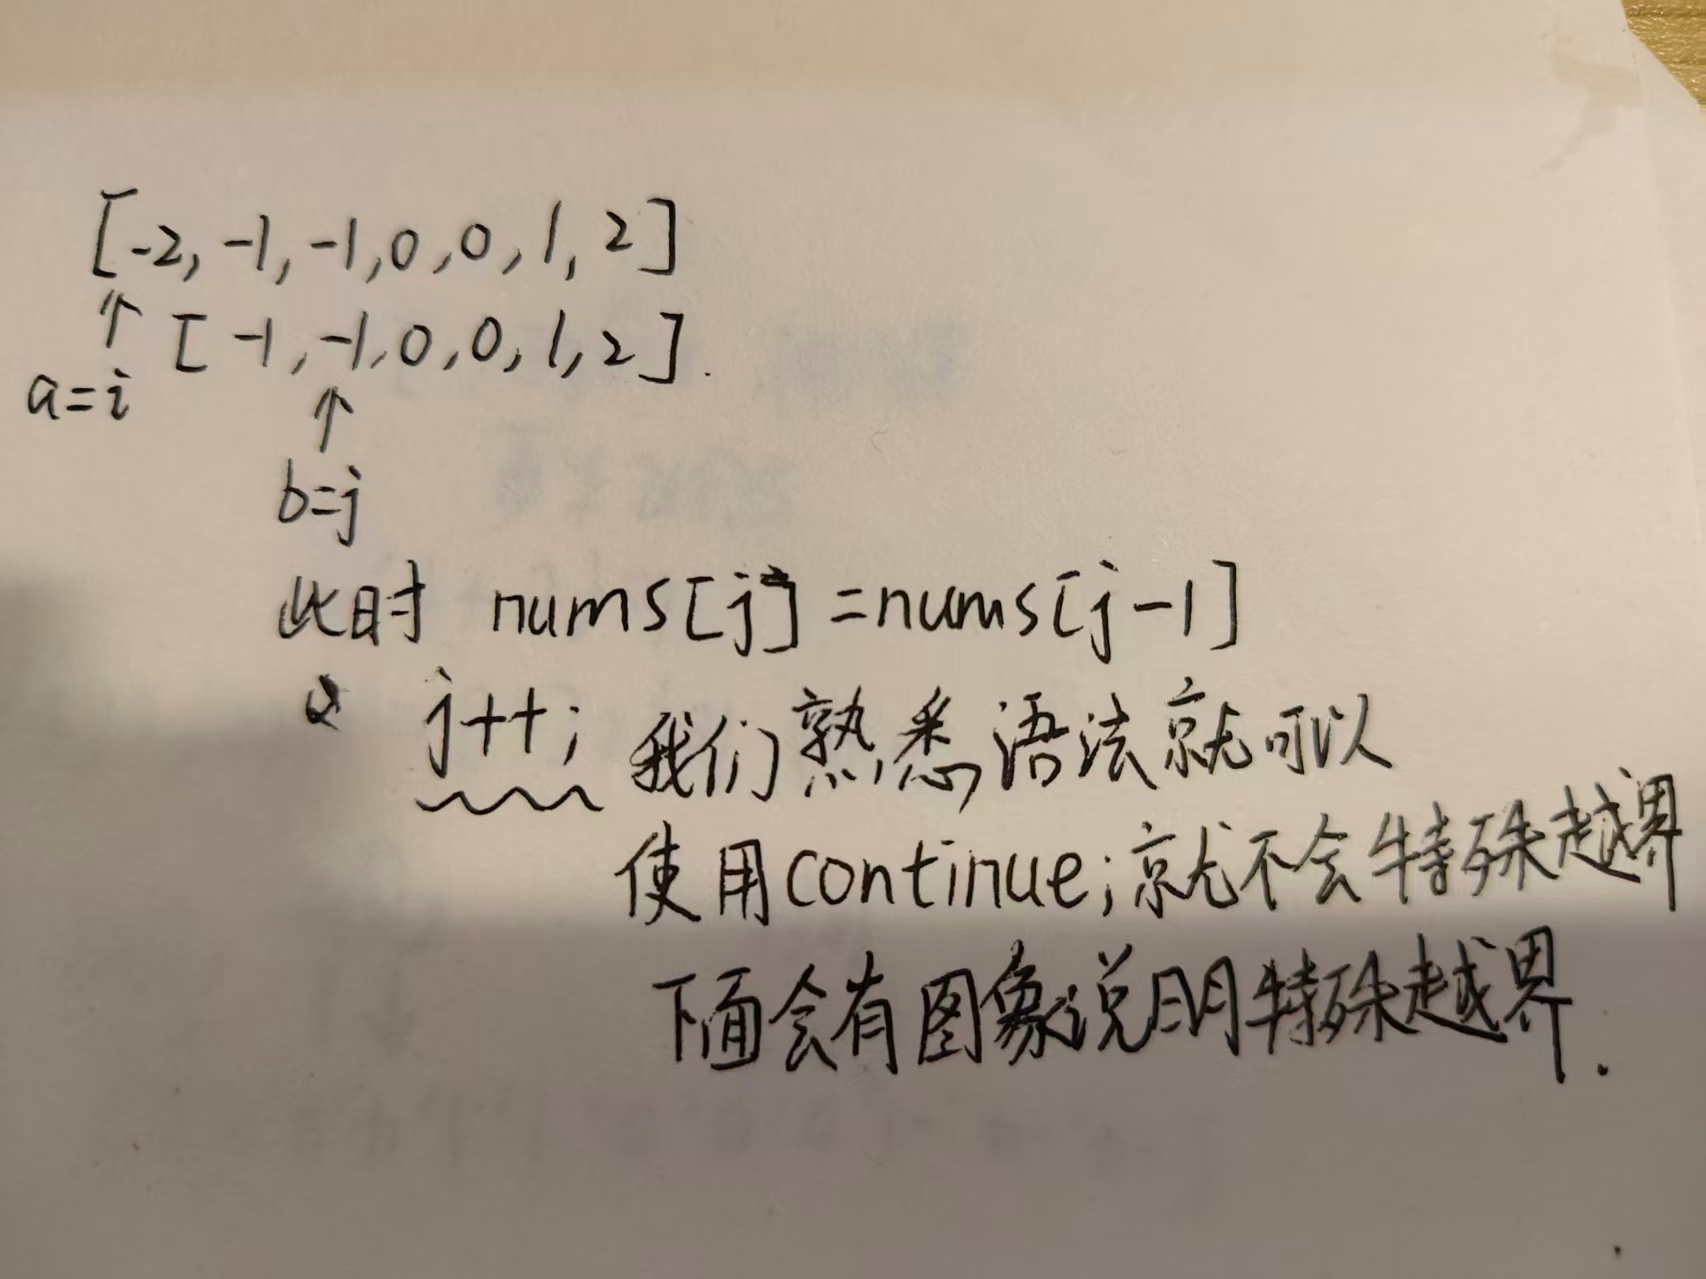 [-2, -1, -1, 0, 0, 1, 2]
[-1, -1, 0, 0, 1, 2].
a=i
b=j
此时 nums[j] = nums[j-1]
j++; 我们熟悉语法就可以
使用continue;就不会特殊越界
下面会有图象说明特殊越界.